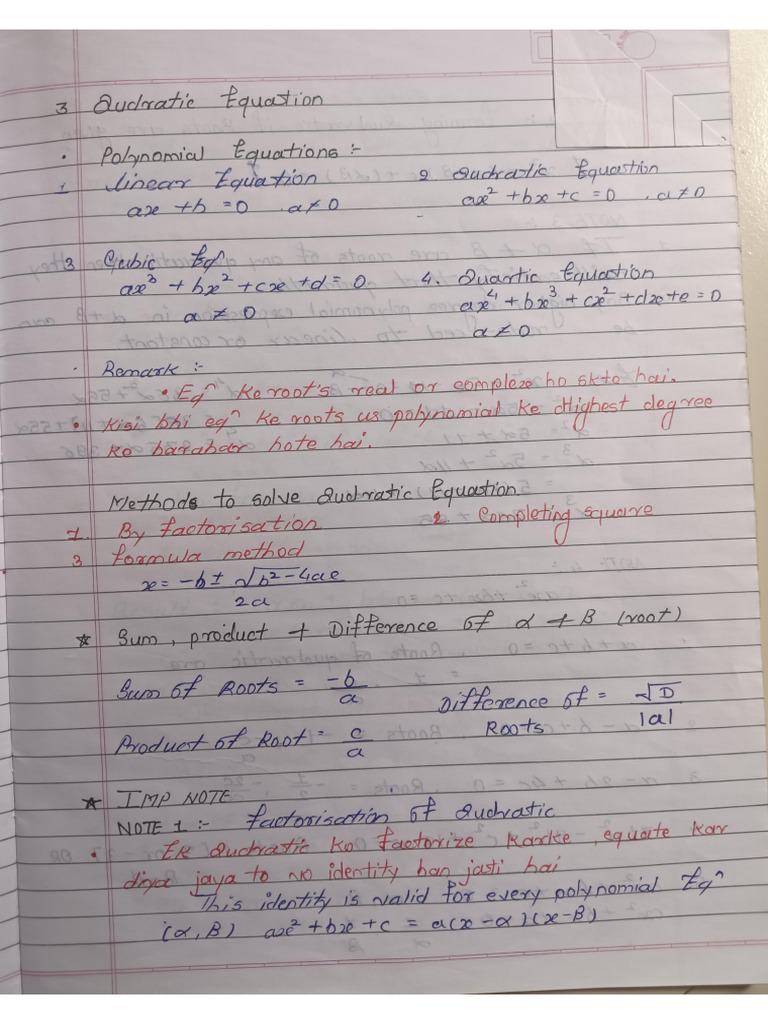 3 Qudratic Equation
• Polynomial Equations :-
1 linear Equation 2 Qudrastic Equation
ax + b = 0 . a ≠ 0 ax² + bx + c = 0 . a ≠ 0
3 Cubic Eqⁿ 4. Quartic Equation
ax³ + bx² + cx + d = 0 ax⁴ + bx³ + cx² + dx + e = 0
a ≠ 0 a ≠ 0
• Remark :-
• Eqⁿ Ke root's real or complexe ho skto hai.
• Kisi bhi eqⁿ ke roots us polynomial ke Highest degree
ko barabar hote hai.
Methods to solve Qudratic Equation
1. By factorisation 2 Completing square
3 formula method
x = -b ± √b² - 4ac
2a
* Sum, product + Difference of α + β (root)
Sum of Roots = -b/a Difference of Roots = √D/|a|
Product of Root = c/a
* IMP NOTE
NOTE 1 :- factorisation of Qudratic
• Ek Qudratic Ko factorize Karke, equate kar
diya jaya to no identity ban jasti hai
This identity is valid for every polynomial Eqⁿ
(α, β) ax² + bx + c = a(x - α)(x - β)